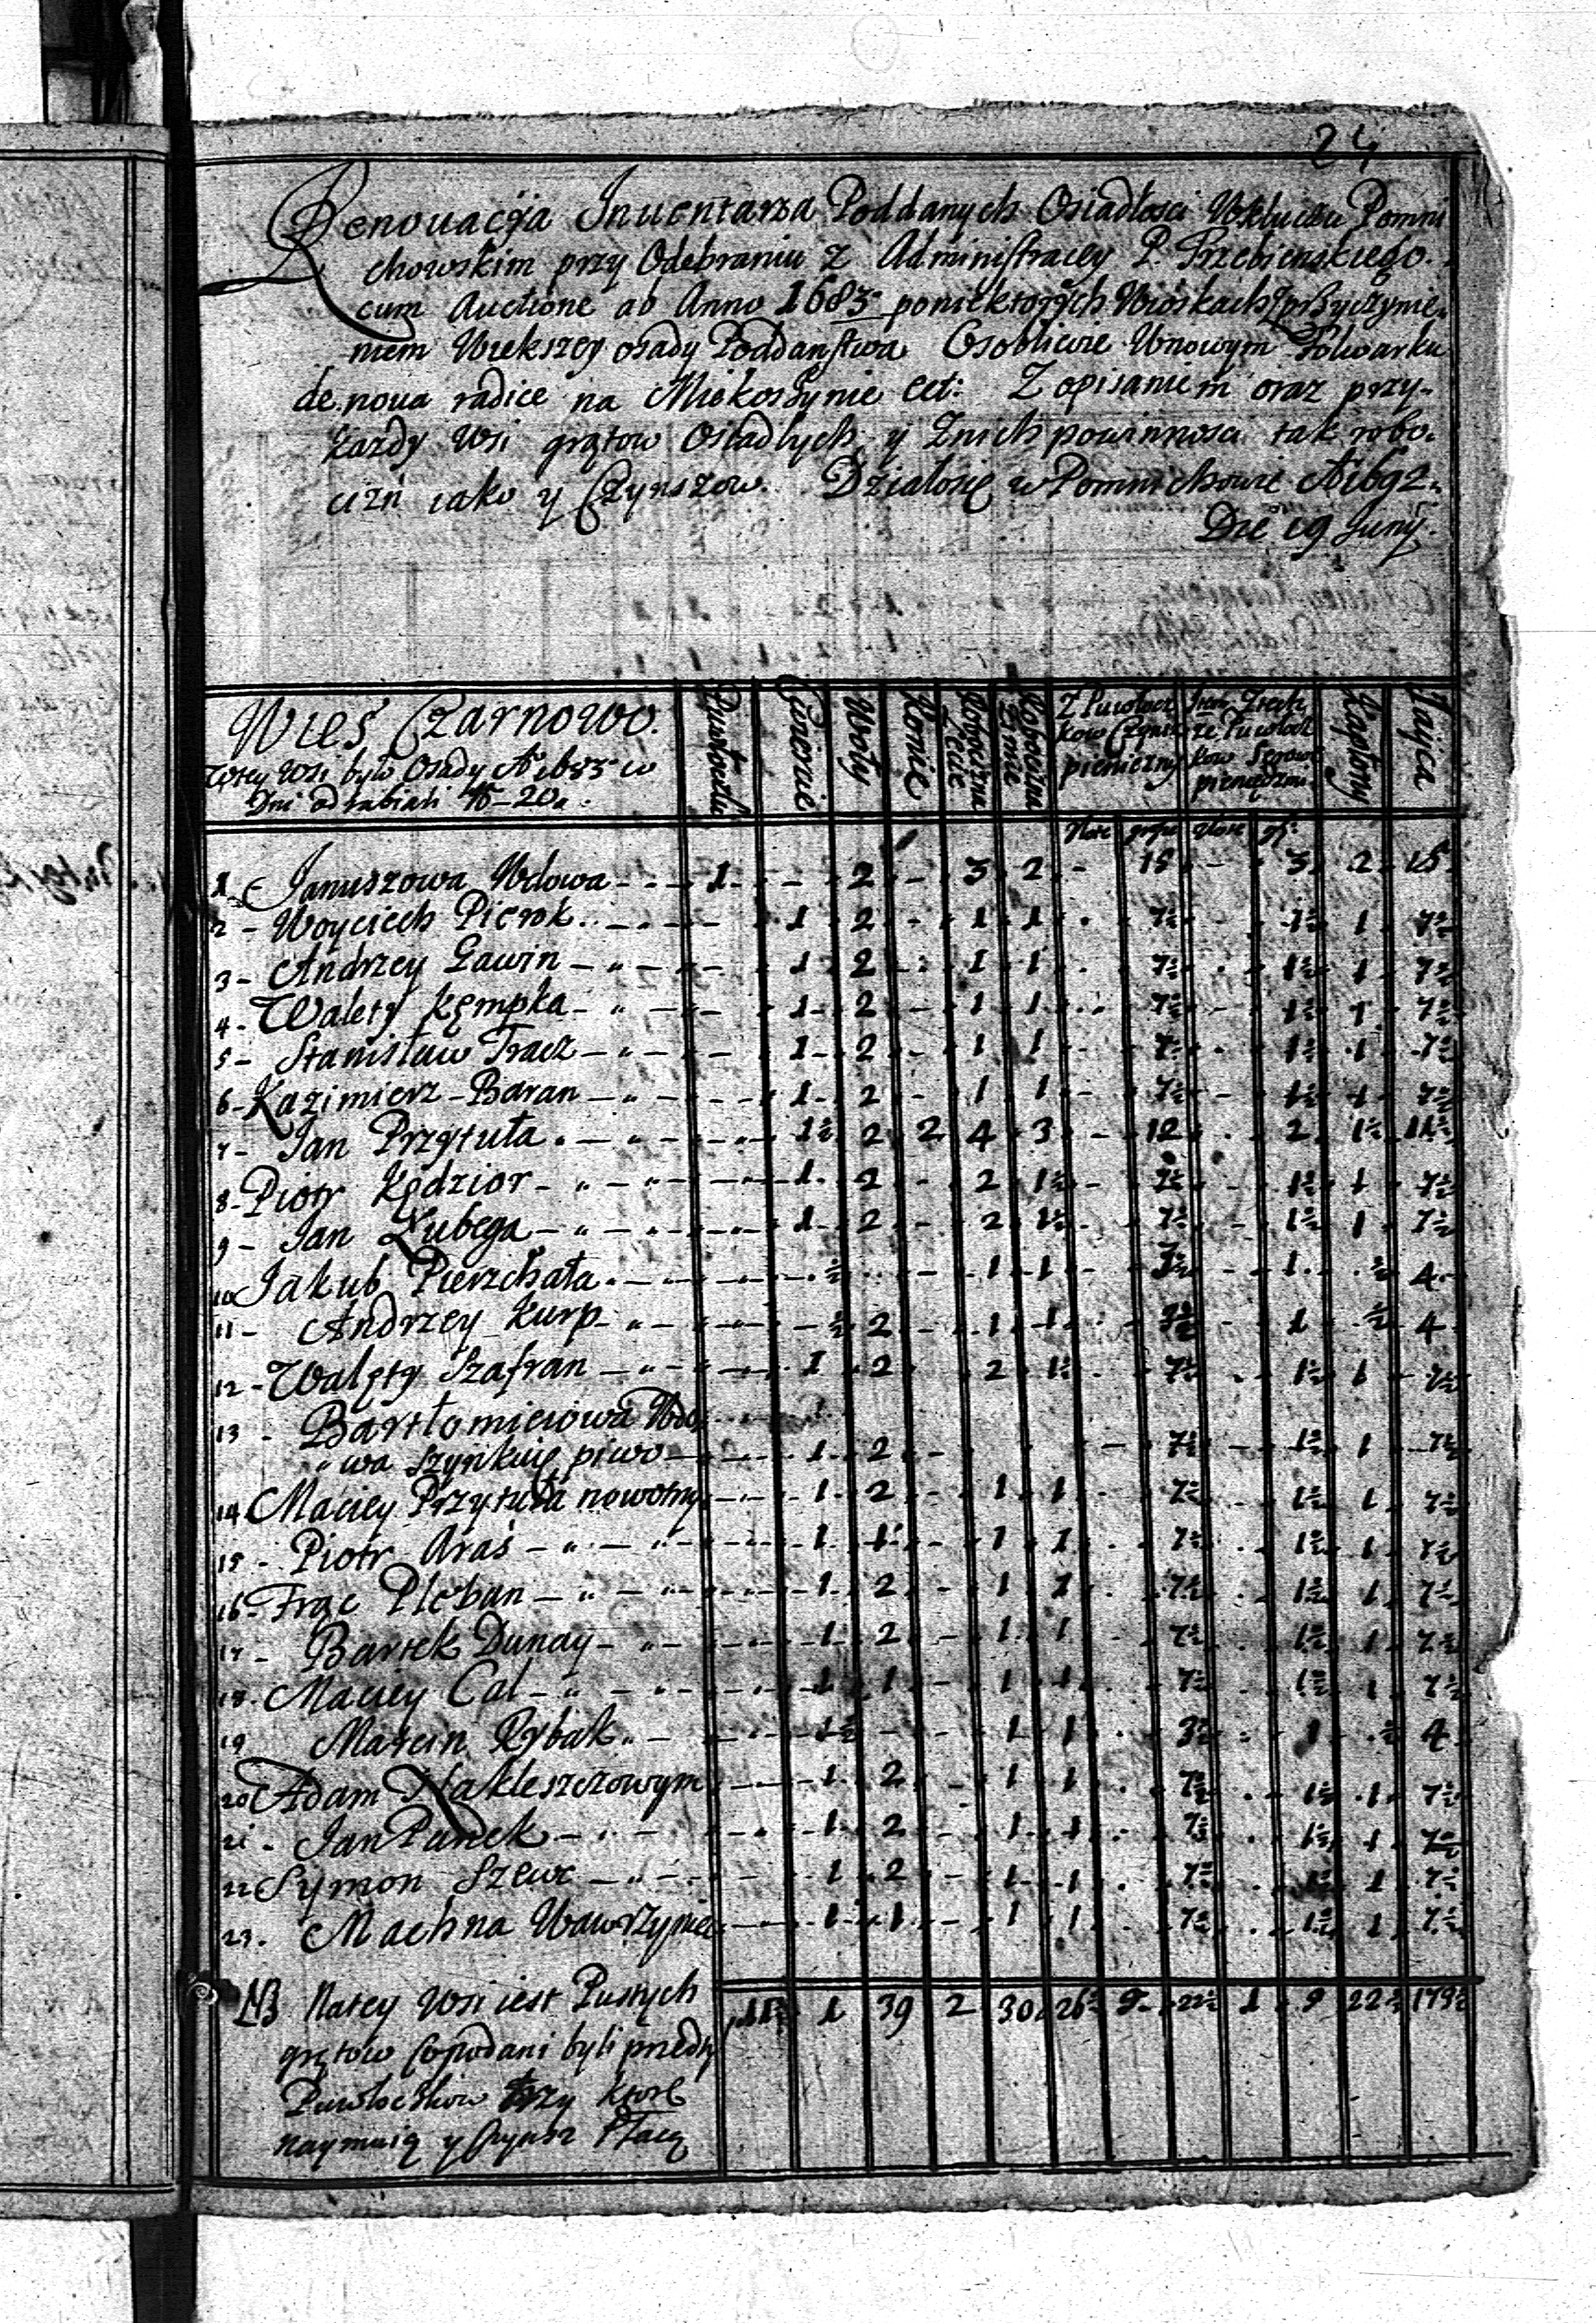 24
Renouacyia Inuentarza Poddanych Osiadłosci Wkluczu Pomni
chowskim przy Odebraniu z Administracyey P. Trzebienskiego.
cum Auctione ab Anno 1683 poniektorych Wioskach przyczynie.
niem Wiekszey osady Poddanstwa Osobliwie Wnowym Folwarku
de noua radice na Miekoszynie cet: Z opisaniem oraz przy-
Kazdy Wsi grętow Osiadłych, y Znich powinnosci tak robo.
cizn iako y Czynszow. Działosię w Pomnichowie Ao 1692.
Die 19 Juny.
Wies Czarnowo. Puwłoczki Cwiercie Woły Konie Robocizna Lecie Robocizna Zimie Z Puwłocz kow Czynsz pieniezny ze Puwłocz kow pieniędzmi Kapłony Jayca
Wtey Wsi było Osady Ao 1683 w
Dni odrabiali No 20.
Złote grosze Złote gr:
1 - Januszowa Wdowa 1 - 2 - 3 2 - 15 - 3 2 15
2 - Woyciech Pierok 1 2 - 1 1 - 7½ - 1½ 1 7½
3 - Andrzey Gawin 1 2 - 1 1 - 7½ - 1½ 1 7½
4 - Walety Kępka 1 2 - 1 1 - 7½ - 1½ 1 7½
5 - Stanisław Tracz 1 2 - 1 1 - 7½ - 1½ 1 7½
6 - Kazimierz Baran 1 2 - 1 1 - 7½ - 1½ 1 7½
7 - Jan Przytuła 1½ 2 2 4 3 - 12 - 2 1½ 11½
8 - Piotr Kędzior 1 2 - 2 1½ - 7½ - 1½ 1 7½
9 - Jan Lubega 1 2 - 2 1½ - 7½ - 1½ 1 7½
10 Jakub Pierzchała ½ - - 1 1 - 3½ - 1 ½ 4
11 - Andrzey Kurp ½ 2 - 1 1 - 3½ - 1 ½ 4
12 - Walęty Szafran 1 2 - 2 1½ - 7½ - 1½ 1 7½
13 - Bartłomieiowa Wdo
wa szynkuię piwo 1 2 - - 7½ - 1½ 1 7½
14 Maciey Przytuła nowotny 1 2 - 1 1 - 7½ - 1½ 1 7½
15 - Piotr Araś 1 1 - 1 1 - 7½ - 1½ 1 7½
16 - Frąc Pleban 1 2 - 1 1 - 7½ - 1½ 1 7½
17 - Bartek Dunay 1 2 - 1 1 - 7½ - 1½ 1 7½
18 - Maciey Cal 1 1 - 1 1 - 7½ - 1½ 1 7½
19 Marcin Rybak ½ - - 1 1 - 3½ - 1 ½ 4
20 Adam Nakleszczowym 1 2 - 1 1 - 7½ - 1½ 1 7½
21 - Jan Panek 1 2 - 1 1 - 7½ - 1½ 1 7½
22 Symon Szewc 1 2 - 1 1 - 7½ - 1½ 1 7½
23. Machna Wawrzyniec 1 1 - 1 1 - 7½ - 1½ 1 7½
NB Natey Wsi iest Pustych 1 39 2 30 26½ 22½ 1 9 22½ 179½
grętow Co podani byli przedty
Puwłoczkow trzy ktore
naymuią y Czynsz Płacą